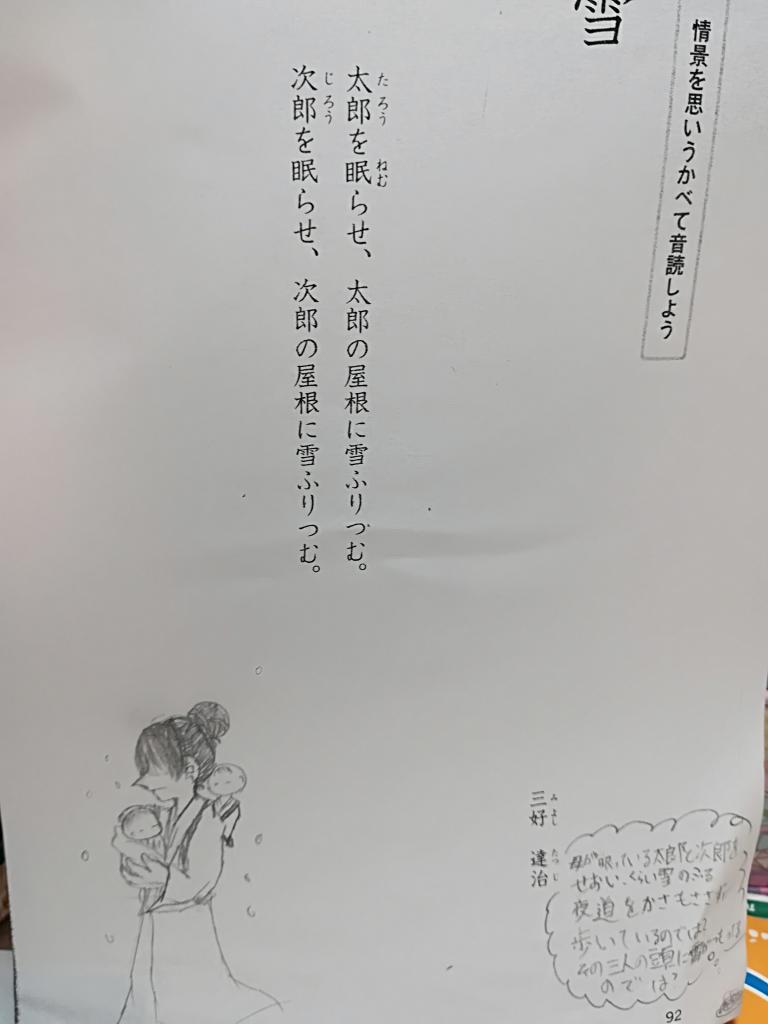 雪
情景を思いうかべて音読しよう
太郎を眠らせ、太郎の屋根に雪ふりつむ。
たろう ねむ
次郎を眠らせ、次郎の屋根に雪ふりつむ。
じろう
三好 達治
みよし たつじ
母が眠っている太郎と次郎を
せおい、くらい雪のふる
夜道をかさもささず
歩いているのでは?
その三人の頭に雪がつもってる
のでは?
92